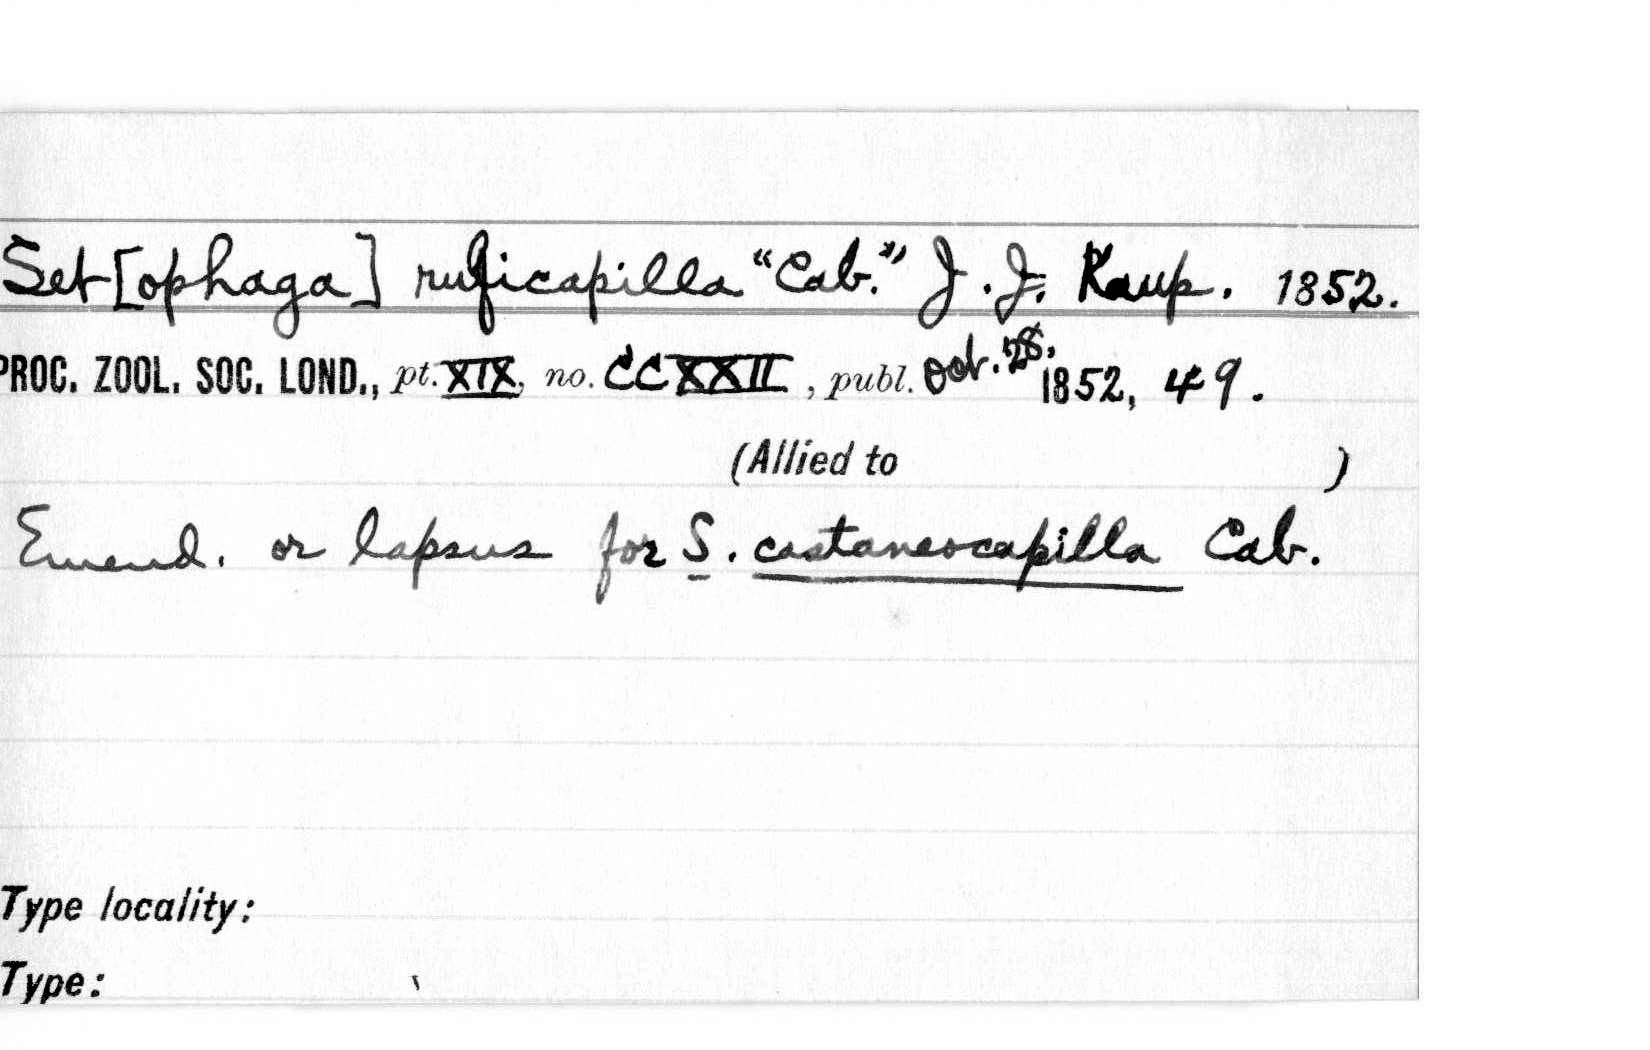 Set[ophaga] ruficapilla "Cab." J. J. Kaup. 1852.
PROC. ZOOL. SOC. LOND., pt. XIX, no. CCXXII, publ. Oct. 28, 1852, 49.
(Allied to )
Emend. or lapsus for S. castaneocapilla Cab.
Type locality:
Type: